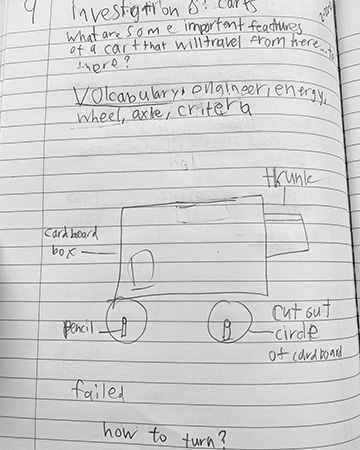 9 Investigation 8: Carts
What are some important features
of a cart that will travel from here to
there?
Vocabulary: engineer, energy,
wheel, axle, criteria
trunk
cardboard
box
pencil
cut out
circle
of cardboard
failed
how to turn?